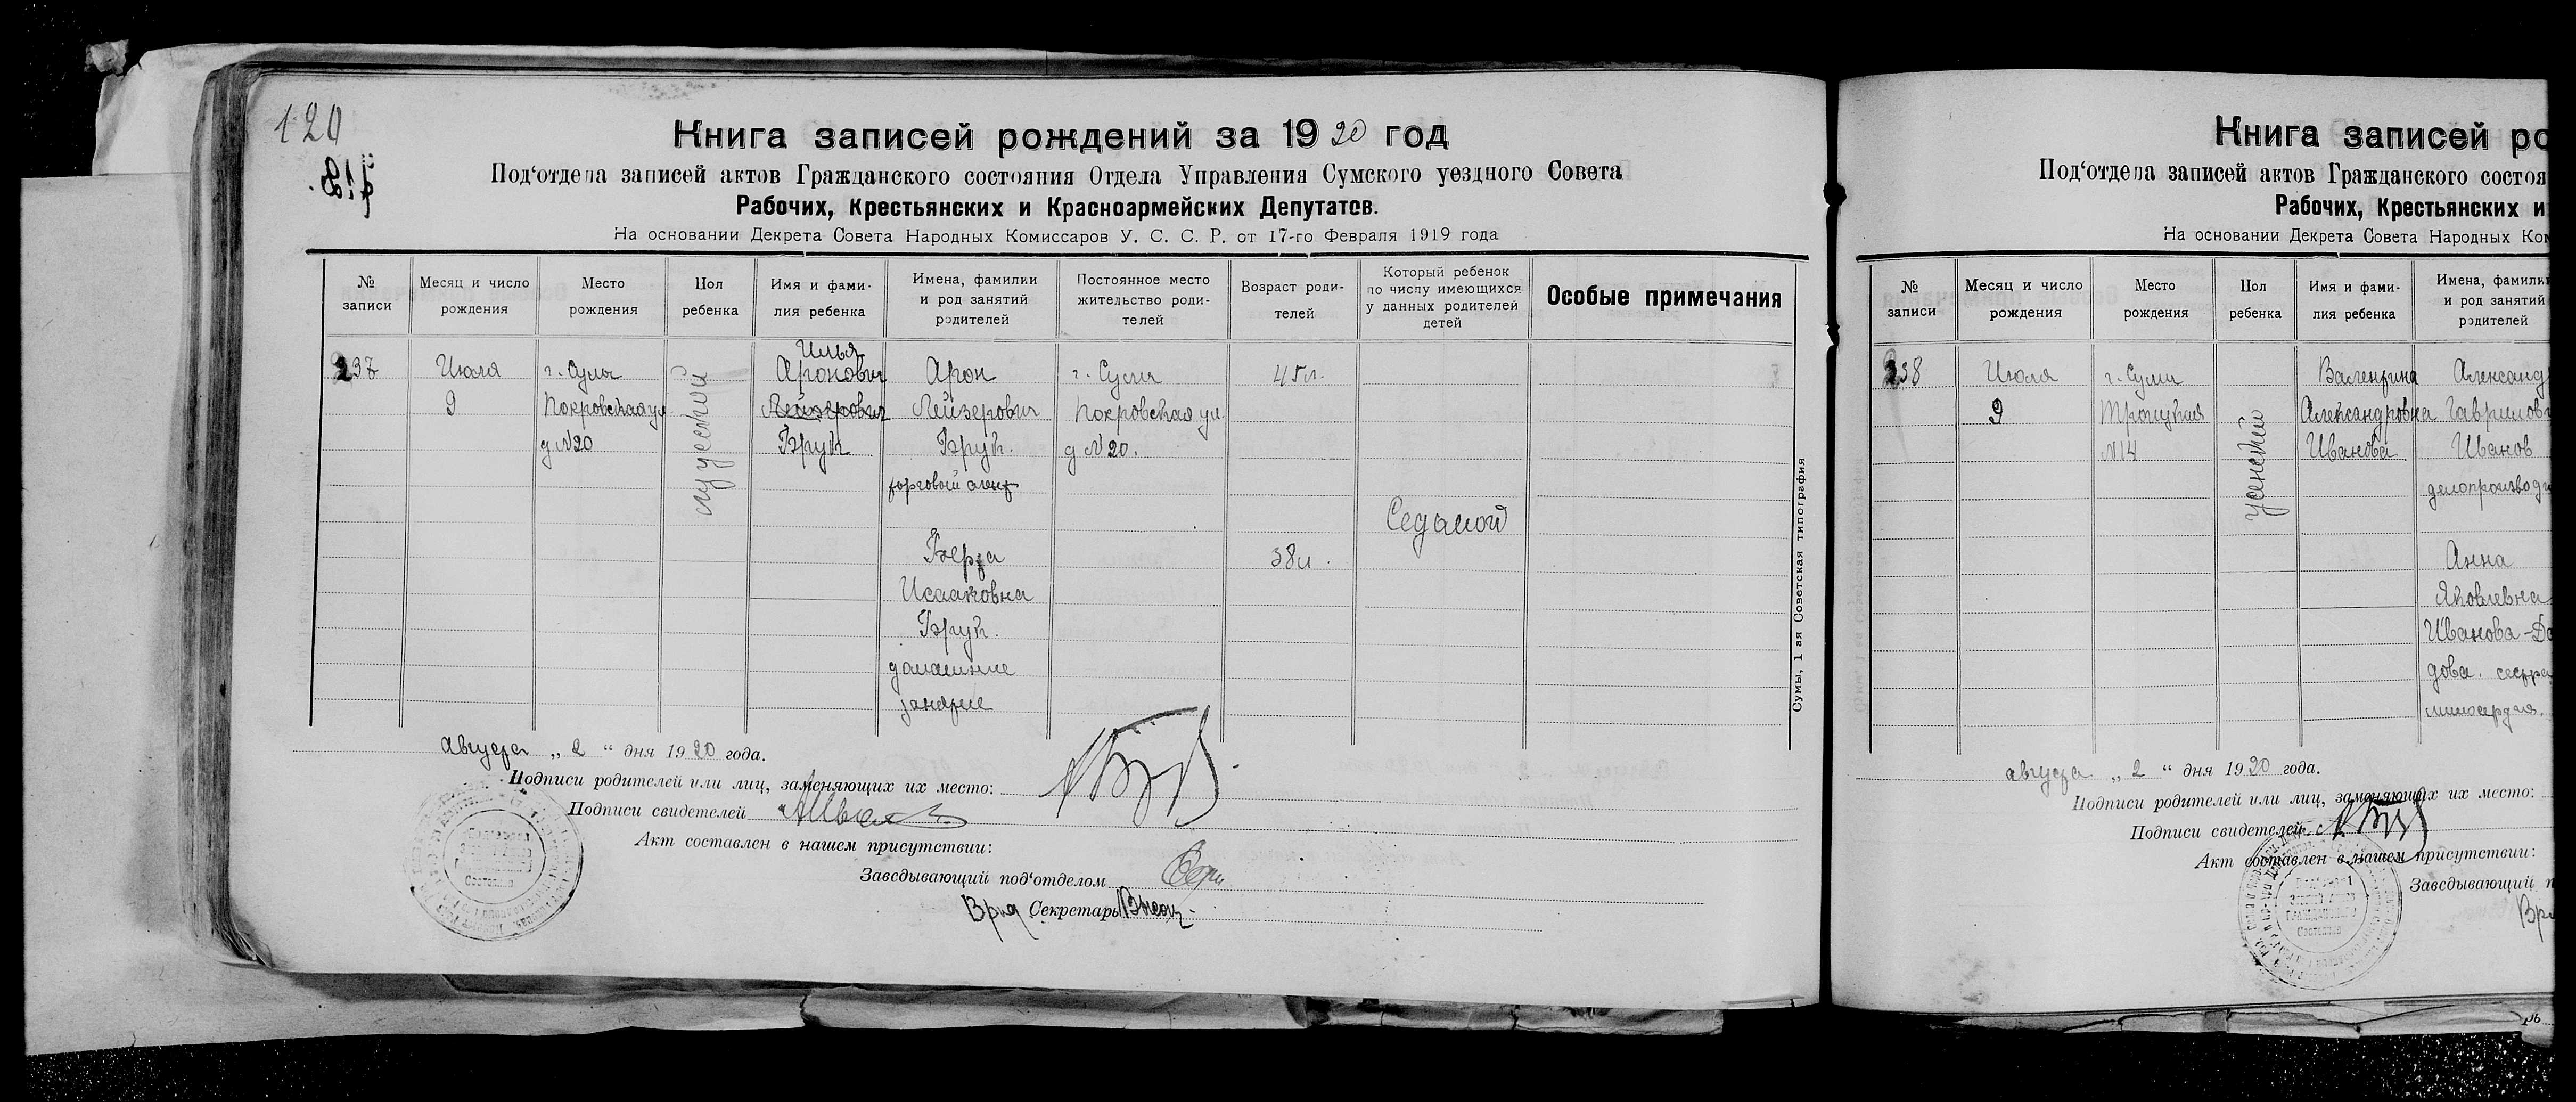 120
Книга записей рождений за 1920 год
Под‘отдела записей актов Гражданского состояния Отдела Управления Сумского уездного Совета
Рабочих, Крестьянских и Красноармейских Депутатов.
На основании Декрета Совета Народных Комиссаров У. С. С. Р. от 17-го Февраля 1919 года
№ записи
Месяц и число рождения
Место рождения
Пол ребенка
Имя и фами-
лия ребенка
Имена, фамилки
и род занятий
родителей
Постоянное место
жительство роди-
телей
Возраст роди-
телей
Который ребенок
по числу имеющихся
у данных родителей
детей
Особые примечания
237
Июля
9
г. Сумы
Покровская ул
д №20
мужеской
Илья
Аронович
Лейзерович
Брук
Арон
Лейзерович
Брук.
торговый агент
Берта
Исааковна
Брук.
домашние
занятие
г. Сумы
Покровская ул.
д №20.
45 л.
38 л.
Седьмой
Сумы, 1 ая Советская типография
Августа „ 2 “ дня 1920 года.
Подписи родителей или лиц, заменяющих их место:
Подписи свидетелей
Акт составлен в нашем присутствии:
Заведывающий под‘отделом
Врид Секретарь
Книга записей ро
Под‘отдела записей актов Гражданского состоя
Рабочих, Крестьянских и
На основании Декрета Совета Народных Ком
№ записи
Месяц и число рождения
Место рождения
Пол ребенка
Имя и фами-
лия ребенка
Имена, фамилки
и род занятий
родителей
238
Июля
9
г. Сумы
Троицкая
№14
женский
Валентина
Александровна
Иванова
Александ
Гаврилов
Иванов
делопроизвод
Анна
Яковлевна
Иванова-Да
дова. сестра
милосердия.
августа „ 2 “ дня 1920 года.
Подписи родителей или лиц, заменяющих их место:
Подписи свидетелей
Акт составлен в нашем присутствии:
Заведывающий п
Ври